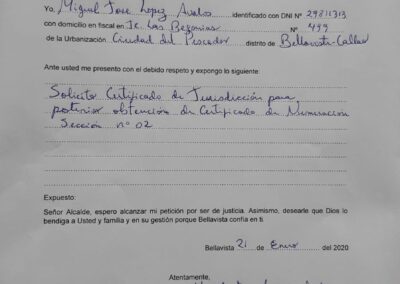 Yo, Miguel Jose Lopez Avalos identificado con DNI N° 29811313
con domicilio en fiscal en Jr. Las Begonias N° 499
de la Urbanización, Ciudad del Pescador distrito de Bellavista-Callao
Ante usted me presento con el debido respeto y expongo lo siguiente:
Solicito Certificado de Jurisdicción para
posterior obtención de Certificado de Numeración
Sección n° 02
Expuesto:
Señor Alcalde, espero alcanzar mi petición por ser de justicia. Asimismo, desearle que Dios lo
bendiga a Usted y familia y en su gestión porque Bellavista confía en ti
Bellavista 21 de Enero del 2020
Atentamente,